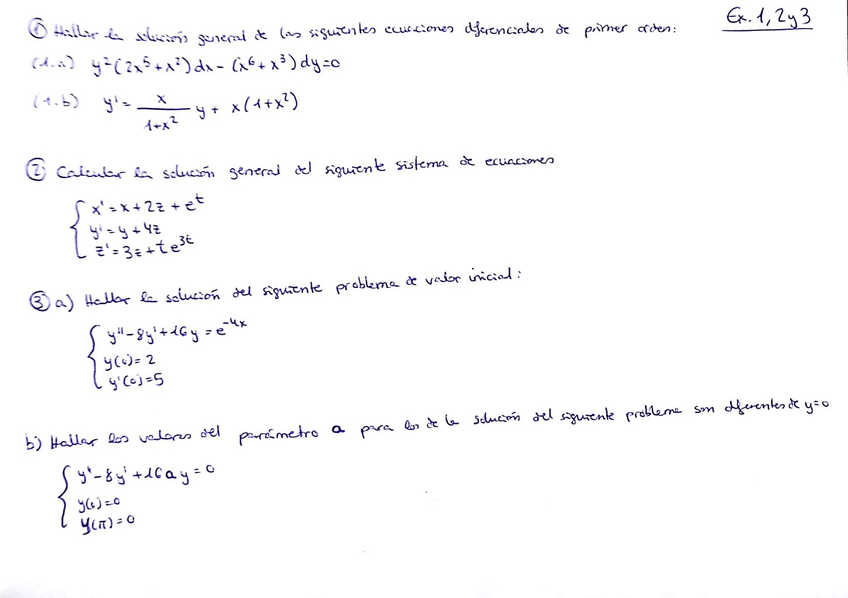 Ex. 1, 2 y 3
① Hallar la solución general de las siguientes ecuaciones diferenciales de primer orden:
(1.a) y²(2x⁵+x²)dx-(x⁶+x³)dy=0
(1.b) y'= x/(1+x²) y + x(1+x²)
② Calcular la solución general del siguiente sistema de ecuaciones
x'=x+2z+eᵗ
y'=y+4z
z'=3z+te³ᵗ
③ a) Hallar la solución del siguiente problema de valor inicial:
y''-8y'+16y=e⁻⁴ˣ
y(0)=2
y'(0)=5
b) Hallar los valores del parámetro a para los de la solución del siguiente problema son diferentes de y=0
y''-8y'+16ay=0
y(0)=0
y(π)=0